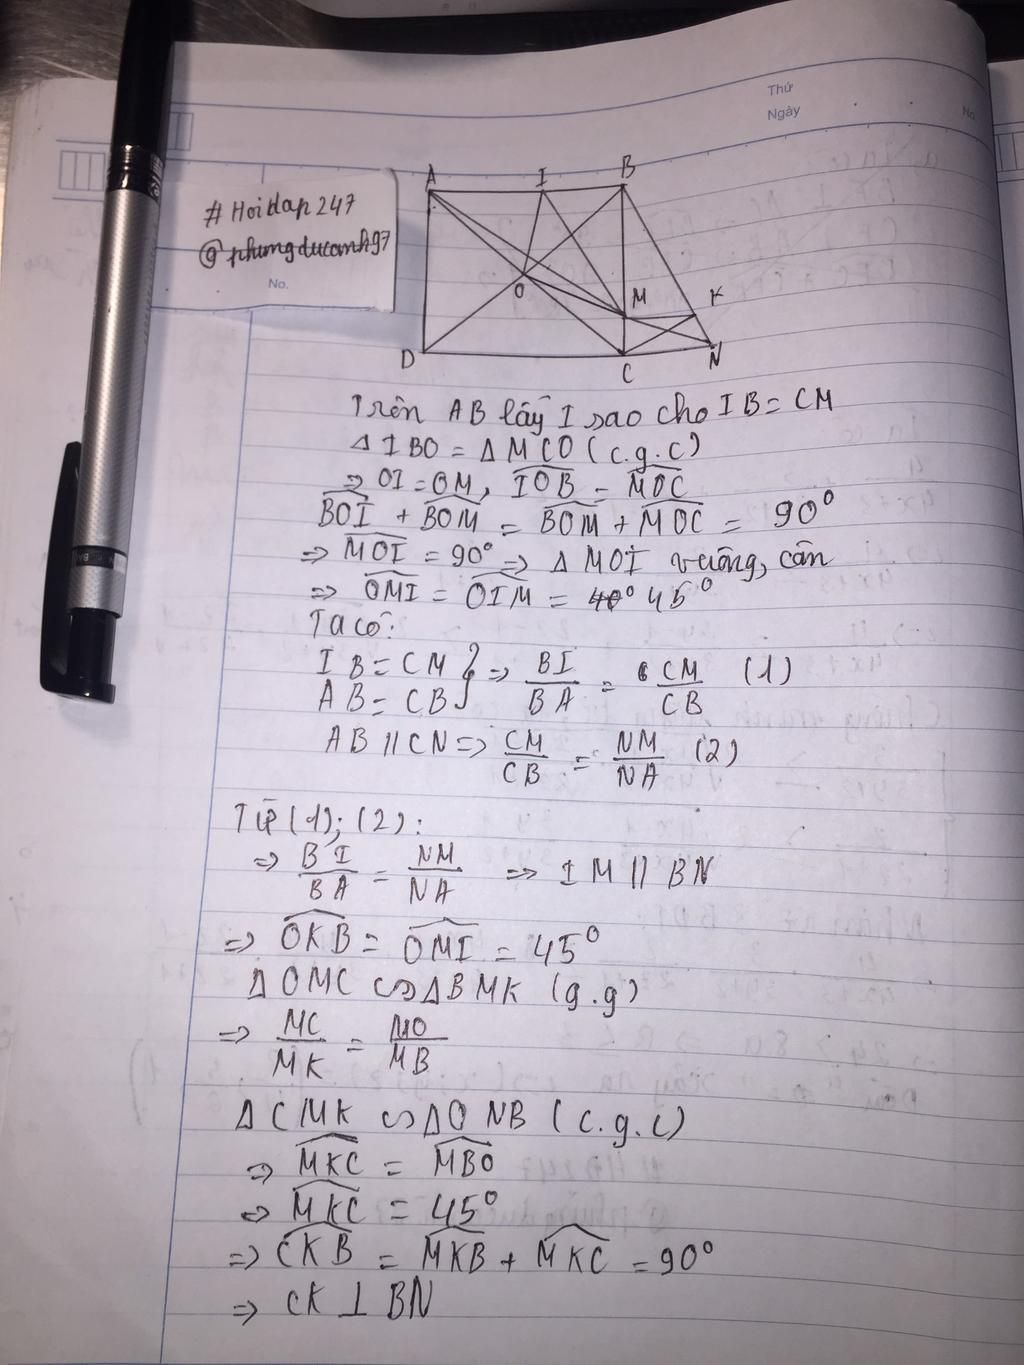 Thứ
Ngày
No.
#Hoidap247
@phungducanh97
No.
A I B
O M K
D C N
Trên AB lấy I sao cho IB = CM
Δ IBO = Δ MCO (c.g.c)
⇒ OI = OM, \widehat{IOB} = \widehat{MOC}
\widehat{BOI} + \widehat{BOM} = \widehat{BOM} + \widehat{MOC} = 90°
⇒ \widehat{MOI} = 90° ⇒ Δ MOI vuông, cân
⇒ \widehat{OMI} = \widehat{OIM} = 45°
Ta có:
IB = CM
AB = CB } ⇒ BI/BA = CM/CB (1)
AB // CN ⇒ CM/CB = NM/NA (2)
Từ (1); (2):
⇒ BI/BA = NM/NA ⇒ IM // BN
⇒ \widehat{OKB} = \widehat{OMI} = 45°
Δ OMC ∽ Δ BMK (g.g)
⇒ MC/MK = MO/MB
Δ CMK ∽ Δ ONB (c.g.c)
⇒ \widehat{MKC} = \widehat{MBO}
⇒ \widehat{MKC} = 45°
⇒ \widehat{CKB} = \widehat{MKB} + \widehat{MKC} = 90°
⇒ CK ⊥ BN